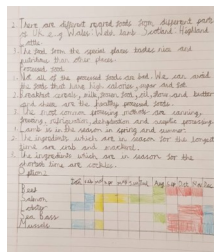 2. There are different reared foods from different parts
of UK e.g. Wales Welsh lamb, Scotland Highland
cattle.
The food from the special places tastes nice and
nutritious than other places.
Processed food
Not all of the processed foods are bad. We can avoid
the foods that have high calories, sugar and fat.
Breakfast cereals, milk, bread, and butter
and cheese are the healthy processed foods.
The most common processing methods are canning,
freezing, refrigeration, dehydration and aseptic processing.
Lamb is in the season in spring and summer.
The ingredients which are in season for the longest
time are crab and mackerel.
The ingredients which are in season for the
shortest time are
Beef
Salmon
Lobster
Sea Bass
Mussels